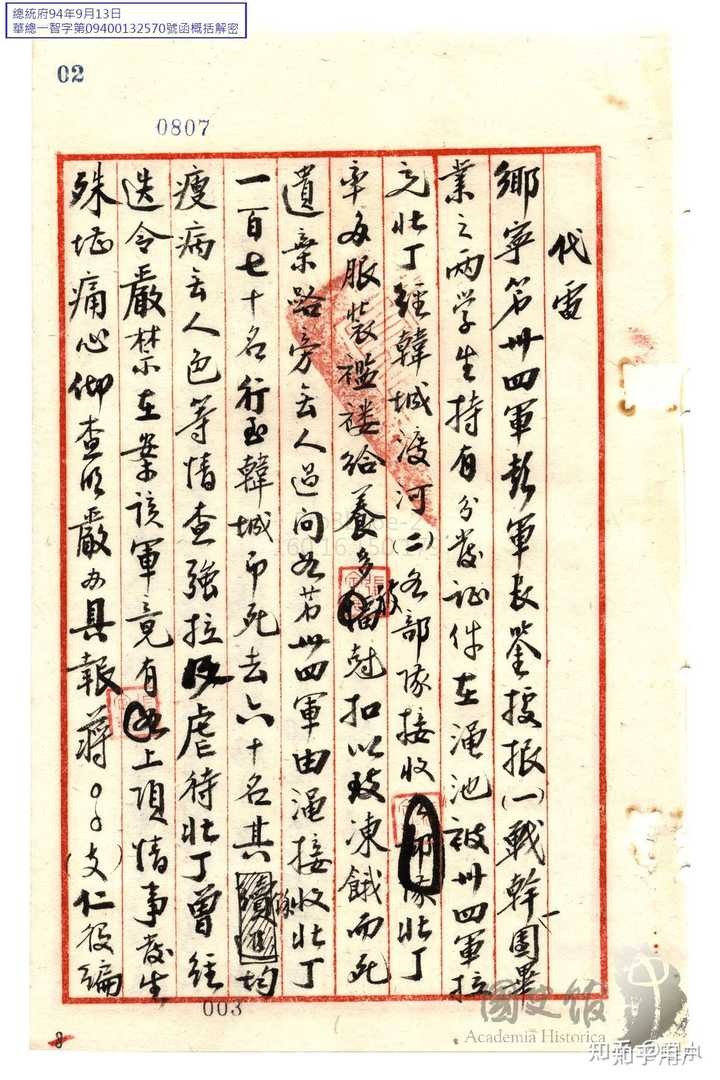 總統府94年9月13日
華總一智字第09400132570號函概括解密
02
0807
代電
鄉寧第卅四軍彭軍長鋻據报(一)戰幹團畢
業之两学生持有分發证件在渑池被卅四軍拉
充壯丁經韓城渡河(二)各部隊接收壯丁
率多服裝褴褸給養多被尅扣以致凍餓而死
遺棄路旁无人過问如第卅四軍由渑接收壯丁
一百七十名行至韓城即死去六十名其餘均
瘦病无人色等情查強拉及虐待壯丁曾經
迭令嚴禁在案該軍竟有上項情事發生
殊堪痛心仰查明嚴办具報蔣〇〇(支)仁役編
003
8
國史館
Academia Historica
知乎用户